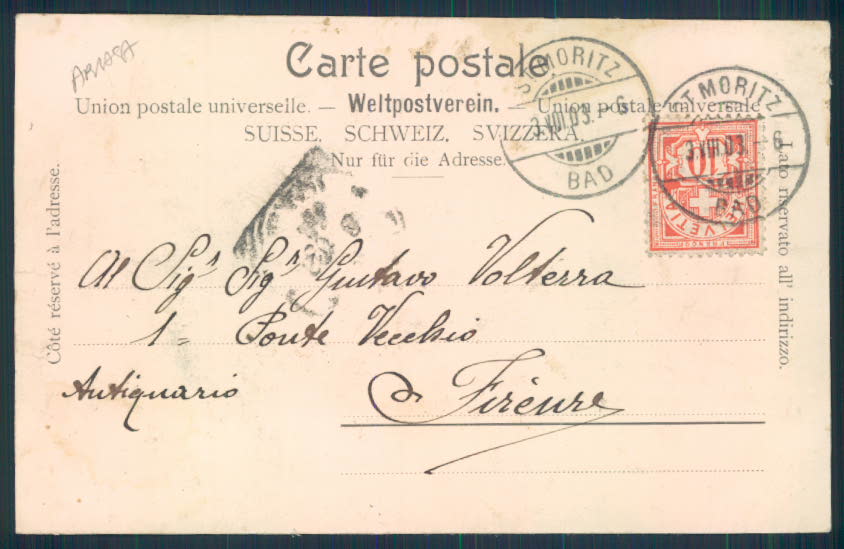 Carte postale
Union postale universelle. — Weltpostverein. — Union postale universale
SUISSE. SCHWEIZ. SVIZZERA.
Nur für die Adresse.
Côté réservé à l'adresse.
Lato riservato all' indirizzo.
ST. MORITZ
3.VIII.03. - 6
BAD
ST. MORITZ
3.VIII.03. - 6
BAD
10
HELVETIA
FRANCO
Al Sigr Sigr Gustavo Volterra
1 " Ponte Vecchio
Antiquario
Firenze